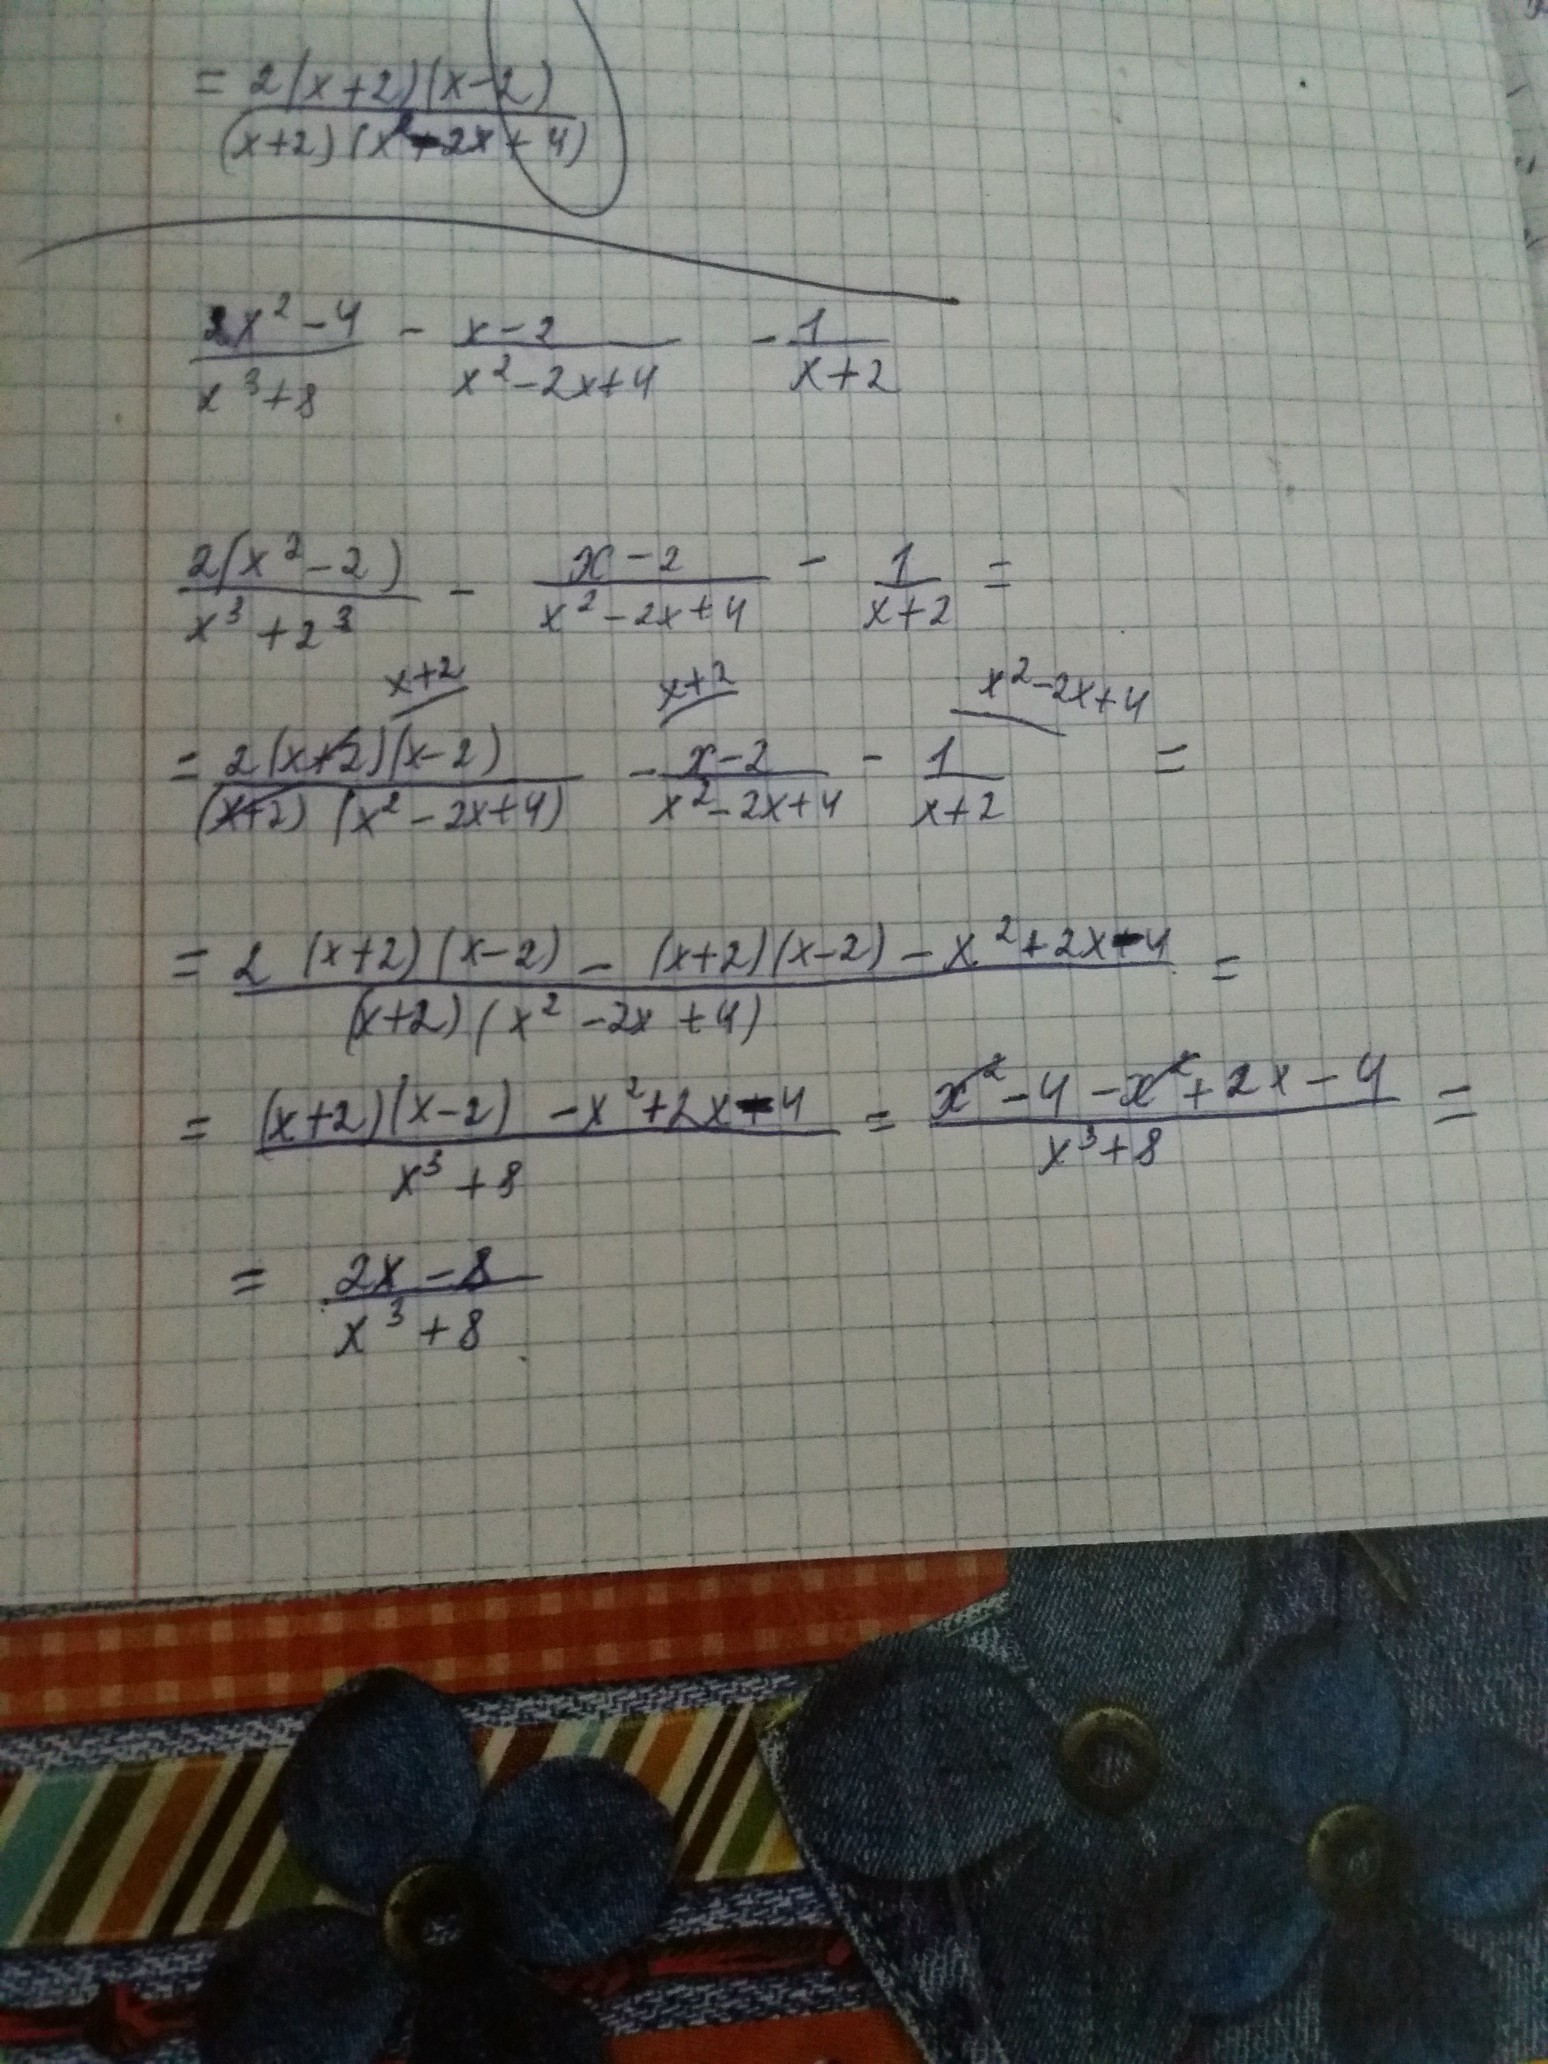 = 2(x+2)(x-2)
(x+2)(x²-2x+4)
2x²-4 - x-2 - 1
x³+8 x²-2x+4 x+2
2(x²-2) - x-2 - 1 =
x³+2³ x²-2x+4 x+2
x+2 x+2 x²-2x+4
= 2(x+2)(x-2) - x-2 - 1 =
(x+2)(x²-2x+4) x²-2x+4 x+2
= 2 (x+2)(x-2) - (x+2)(x-2) - x²+2x-4 =
(x+2)(x²-2x+4)
= (x+2)(x-2) -x²+2x-4 = x²-4-x²+2x-4 =
x³+8 x³+8
= 2x-8
x³+8